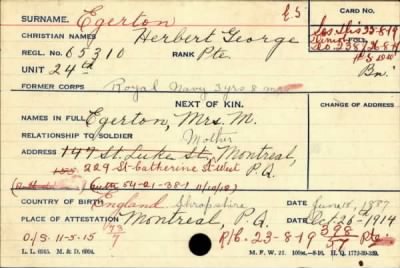 SURNAME. Egerton
E5
CARD
CHRISTIAN NAMES Herbert George
REGL. NO. 65310 RANK Pte.
UNIT 24th
Bn.
FORMER CORPS Royal Navy 3 yrs 8 mos
NEXT OF KIN.
CHANGE OF ADDRESS
NAMES IN FULL Egerton, Mrs. M.
RELATIONSHIP TO SOLDIER Mother
ADDRESS 147 St. Luke St., Montreal,
229 St-Catherine St. West P.Q.
COUNTRY OF BIRTH England Shropshire June 18, 1887
PLACE OF ATTESTATION Montreal, P.Q. Oct. 26th 1914
O/S. 11-5-15 R/C. 23-8-19 398/57 Pte.
L. L. 6055. M. & D. 6994. M. F. W. 22.